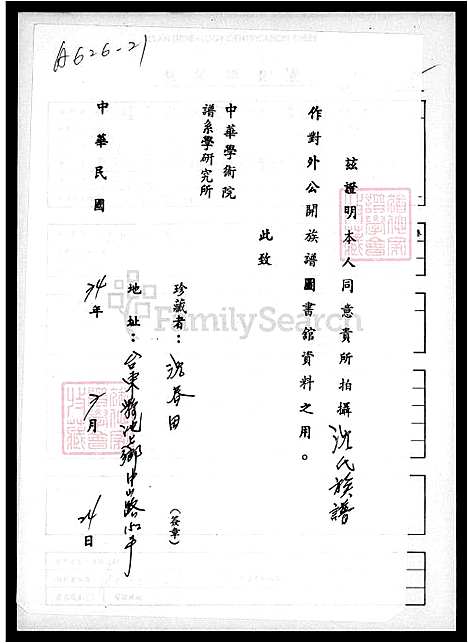 A626-21
茲證明本人同意貴所拍攝沈氏族譜
作對外公開族譜圖書館資料之用。
此致
中華學術院
譜系學研究所
珍藏者：沈春田
(簽章)
地址：台東縣池上鄉中山路
中華民國
74年 3月 24日
FamilySearch